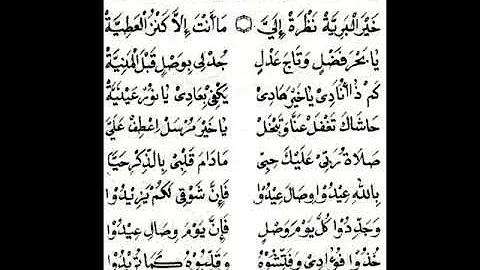 خَيْرَ الْبَرِيَّةْ نَظْرَةْ إِلَيَّ مَا أَنْتَ إِلَّا كَنْزُ الْعَطِيَّةْ
يَا بَحْرَ فَضْلٍ وَتَاجَ عَدْلٍ جُدْ لِي بِوَصْلٍ قَبْلَ الْمَنِيَّةْ
كَمْ ذَا أُنَادِيْ يَا خَيْرَ هَادِيْ يَكْفِيْ بُعَادِيْ يَا نُوْرَ عَيْنَيَّةْ
حَاشَاكَ تَغْفَلْ عَنَّا وَتَبْخَلْ يَا خَيْرَ مُرْسَلْ اِعْطِفْ عَلَيَّ
صَلَاةُ رَبِّيْ عَلَيْكَ حِبِّيْ مَادَامَ قَلْبِيْ بِالذِّكْرِ حَيَّا
بِاللّٰهِ عِيْدُوْا وِصَالَ عِيْدُوْا فَإِنَّ شَوْقِيْ لَكُمْ يَزِيْدُ
وَجَدِّدُوْا كُلَّ يَوْمٍ وَصْلٍ فَإِنَّ يَوْمَ وِصَالِ عِيْدُ
خُذُوْا فُؤَادِيْ وَفَتِّشُوْهُ وَقَلِّبُوْهُ كَمَا تُرِيْدُوْا